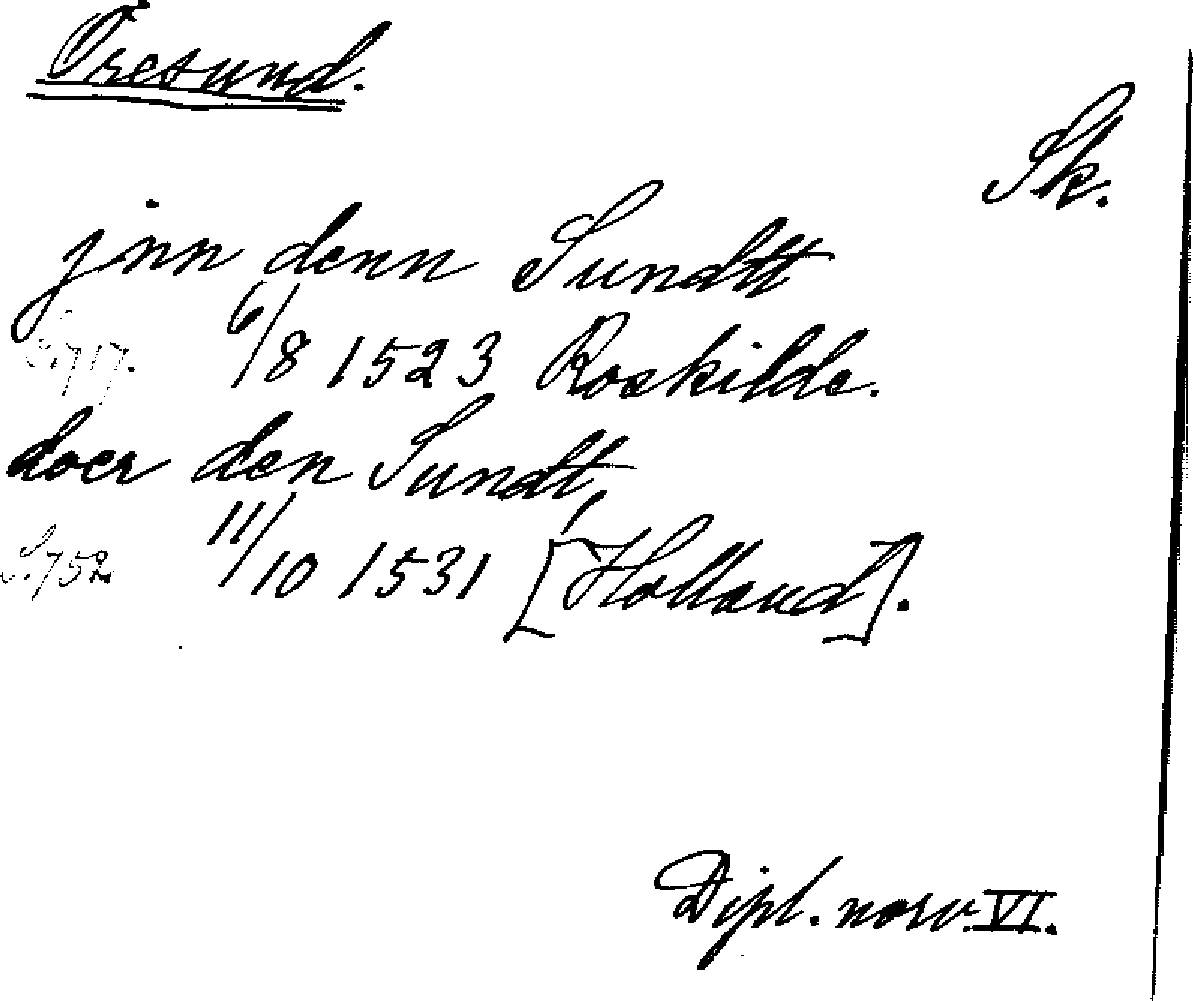 Öresund.
Sk.
jnn denn Sundtt
S. 717. 6/8 1523 Roskilde.
doer den Sundt,
S. 752 11/10 1531 [Holland].
Dipl. norv. VI.